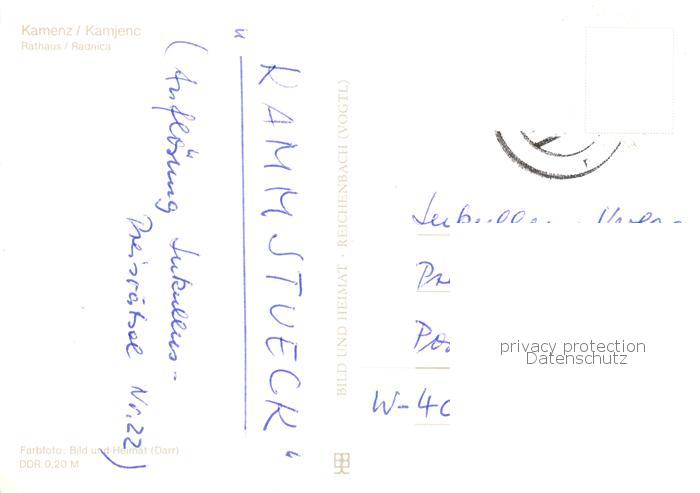 Kamenz / Kamjenc
Rathaus / Radnica
"KAMMSTUECK"
(Auflösung Lukullus-
Preisrätsel Nr.22)
BILD UND HEIMAT · REICHENBACH (VOGTL)
W-40
privacy protection
Datenschutz
Farbfoto: Bild und Heimat (Darr)
DDR 0,20 M